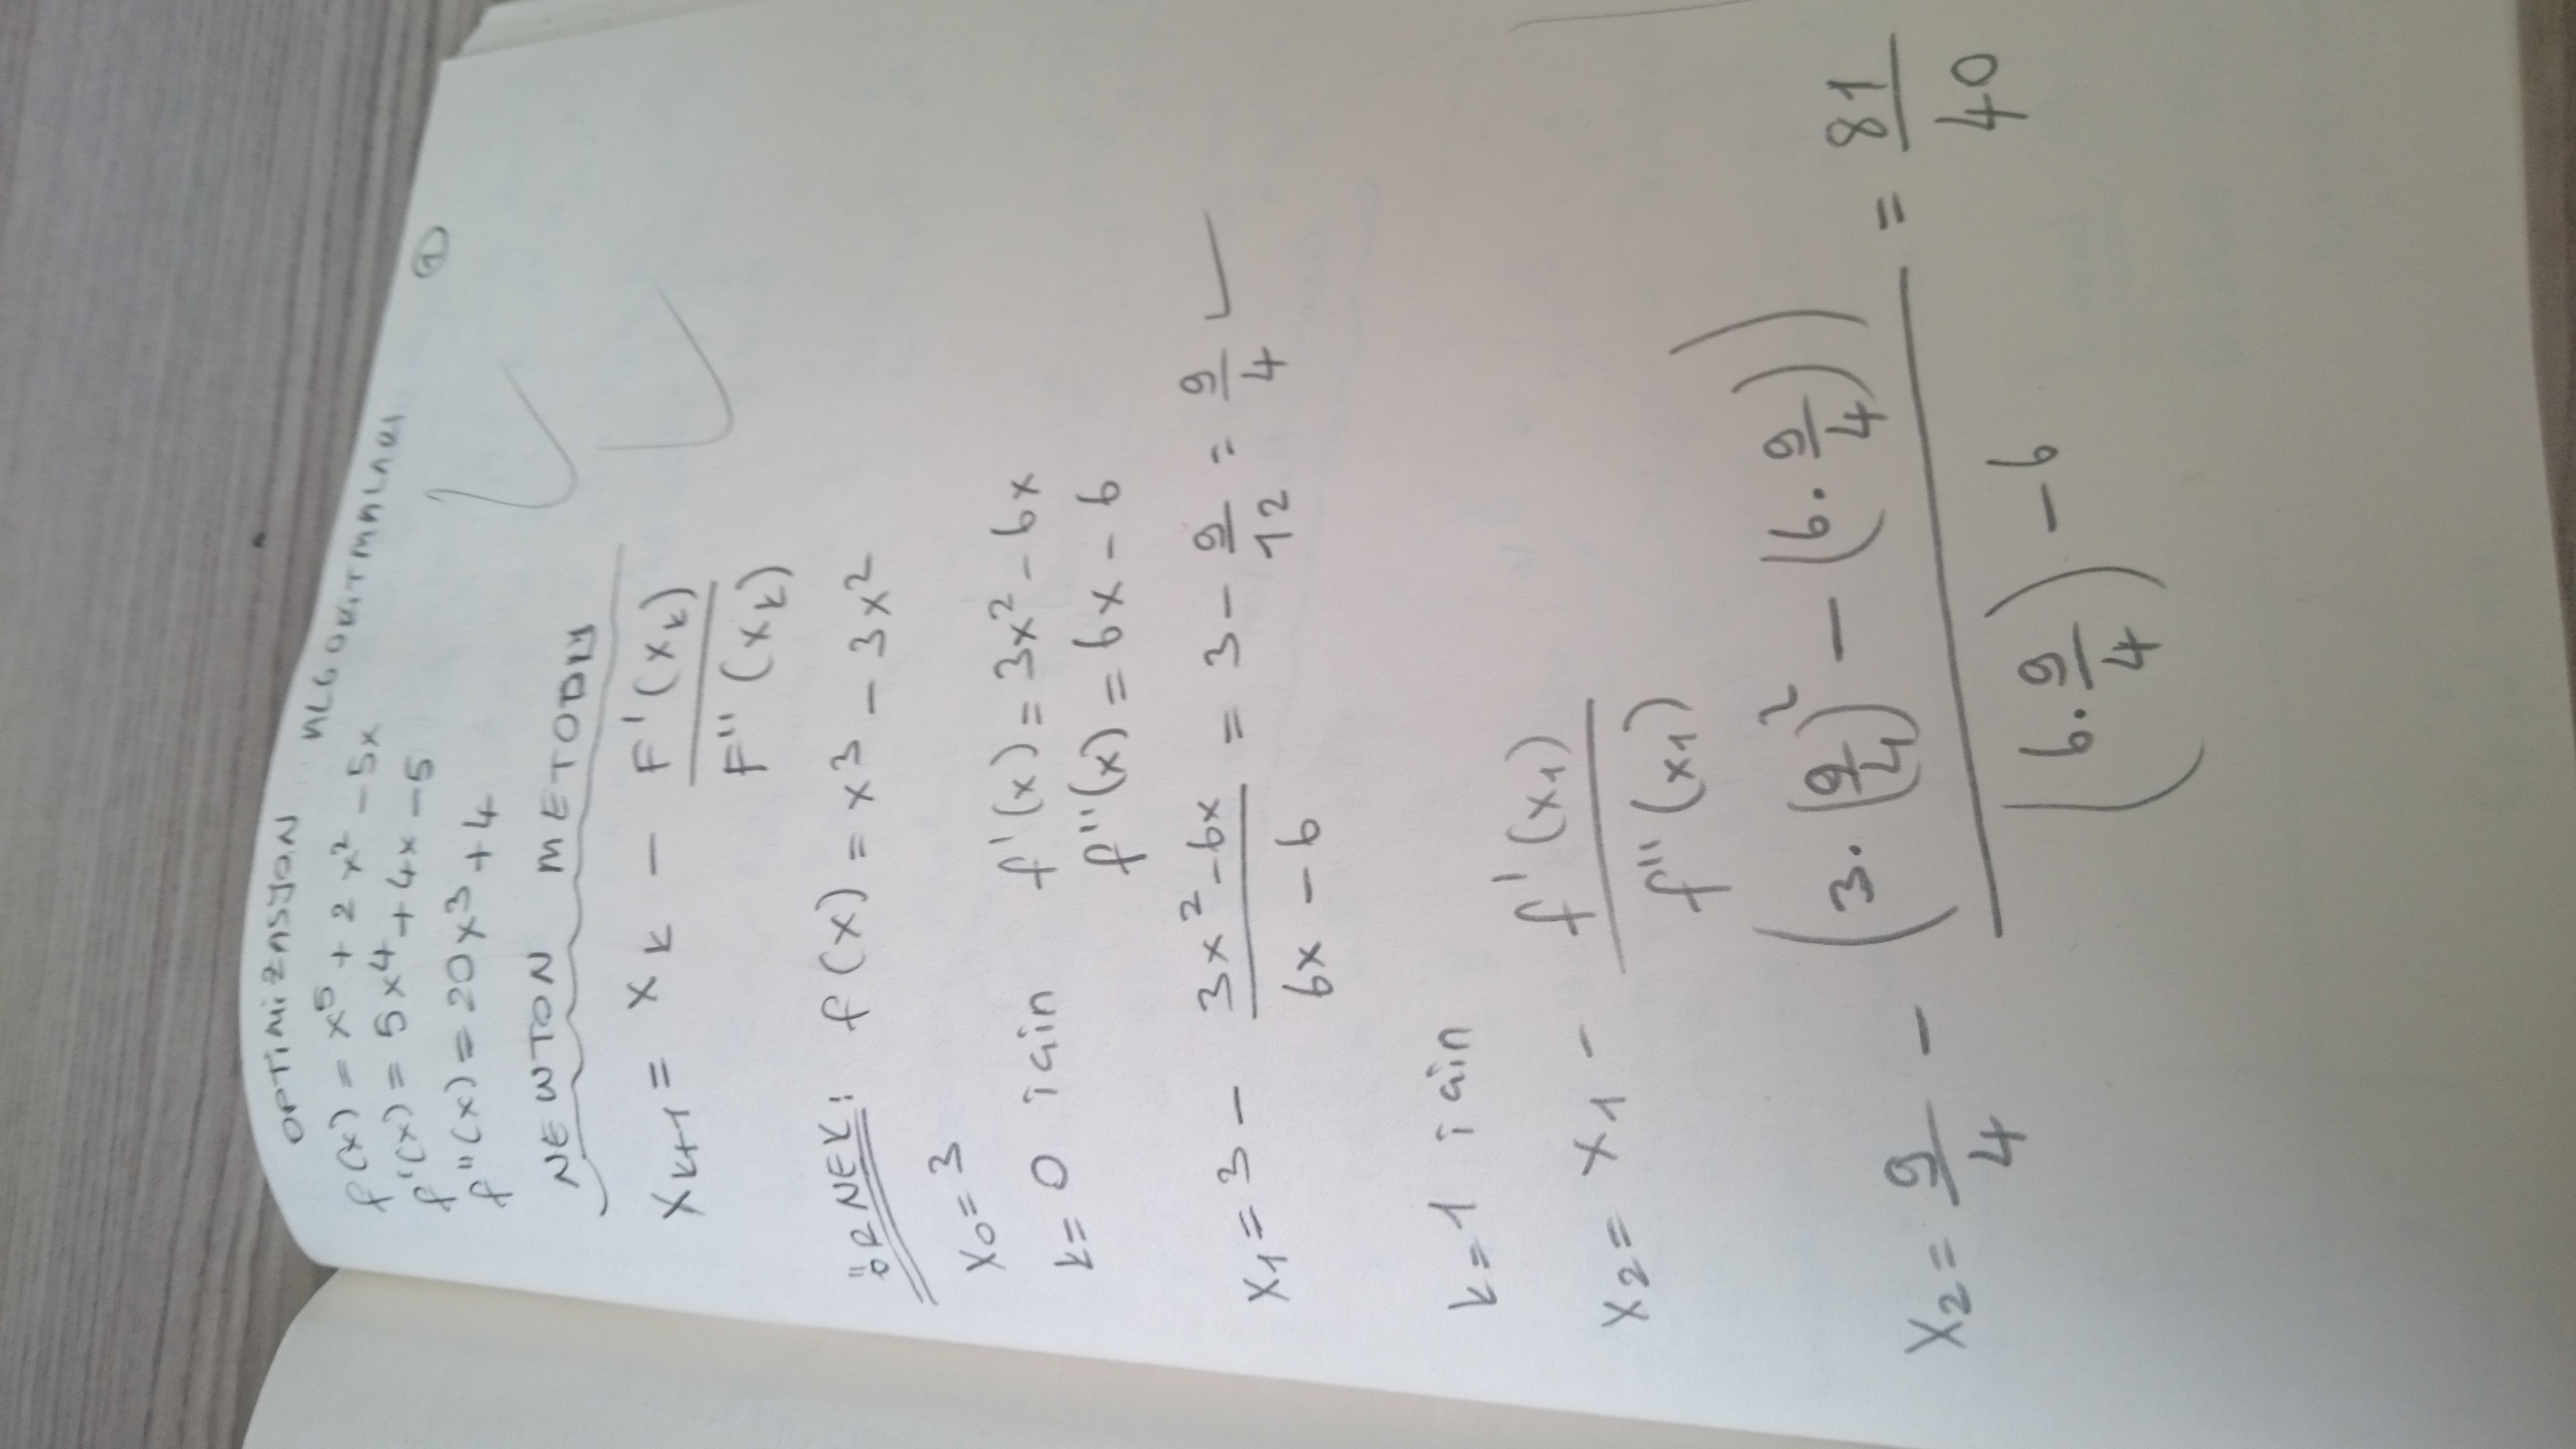 OPTİMİZASYON ALGORİTMALARI
①
f(x) = x⁵ + 2x² - 5x
f'(x) = 5x⁴ + 4x - 5
f"(x) = 20x³ + 4
NEWTON METODU
xₖ₊₁ = xₖ - F'(xₖ) / F"(xₖ)
ÖRNEK: f(x) = x³ - 3x²
x₀ = 3
k = 0 için f'(x) = 3x² - 6x
f"(x) = 6x - 6
x₁ = 3 - (3x² - 6x) / (6x - 6) = 3 - 9/12 = 9/4 ✓
k = 1 için
x₂ = x₁ - f'(x₁) / f"(x₁)
x₂ = 9/4 - (3·(9/4)² - (6·9/4)) / ((6·9/4) - 6) = 81/40